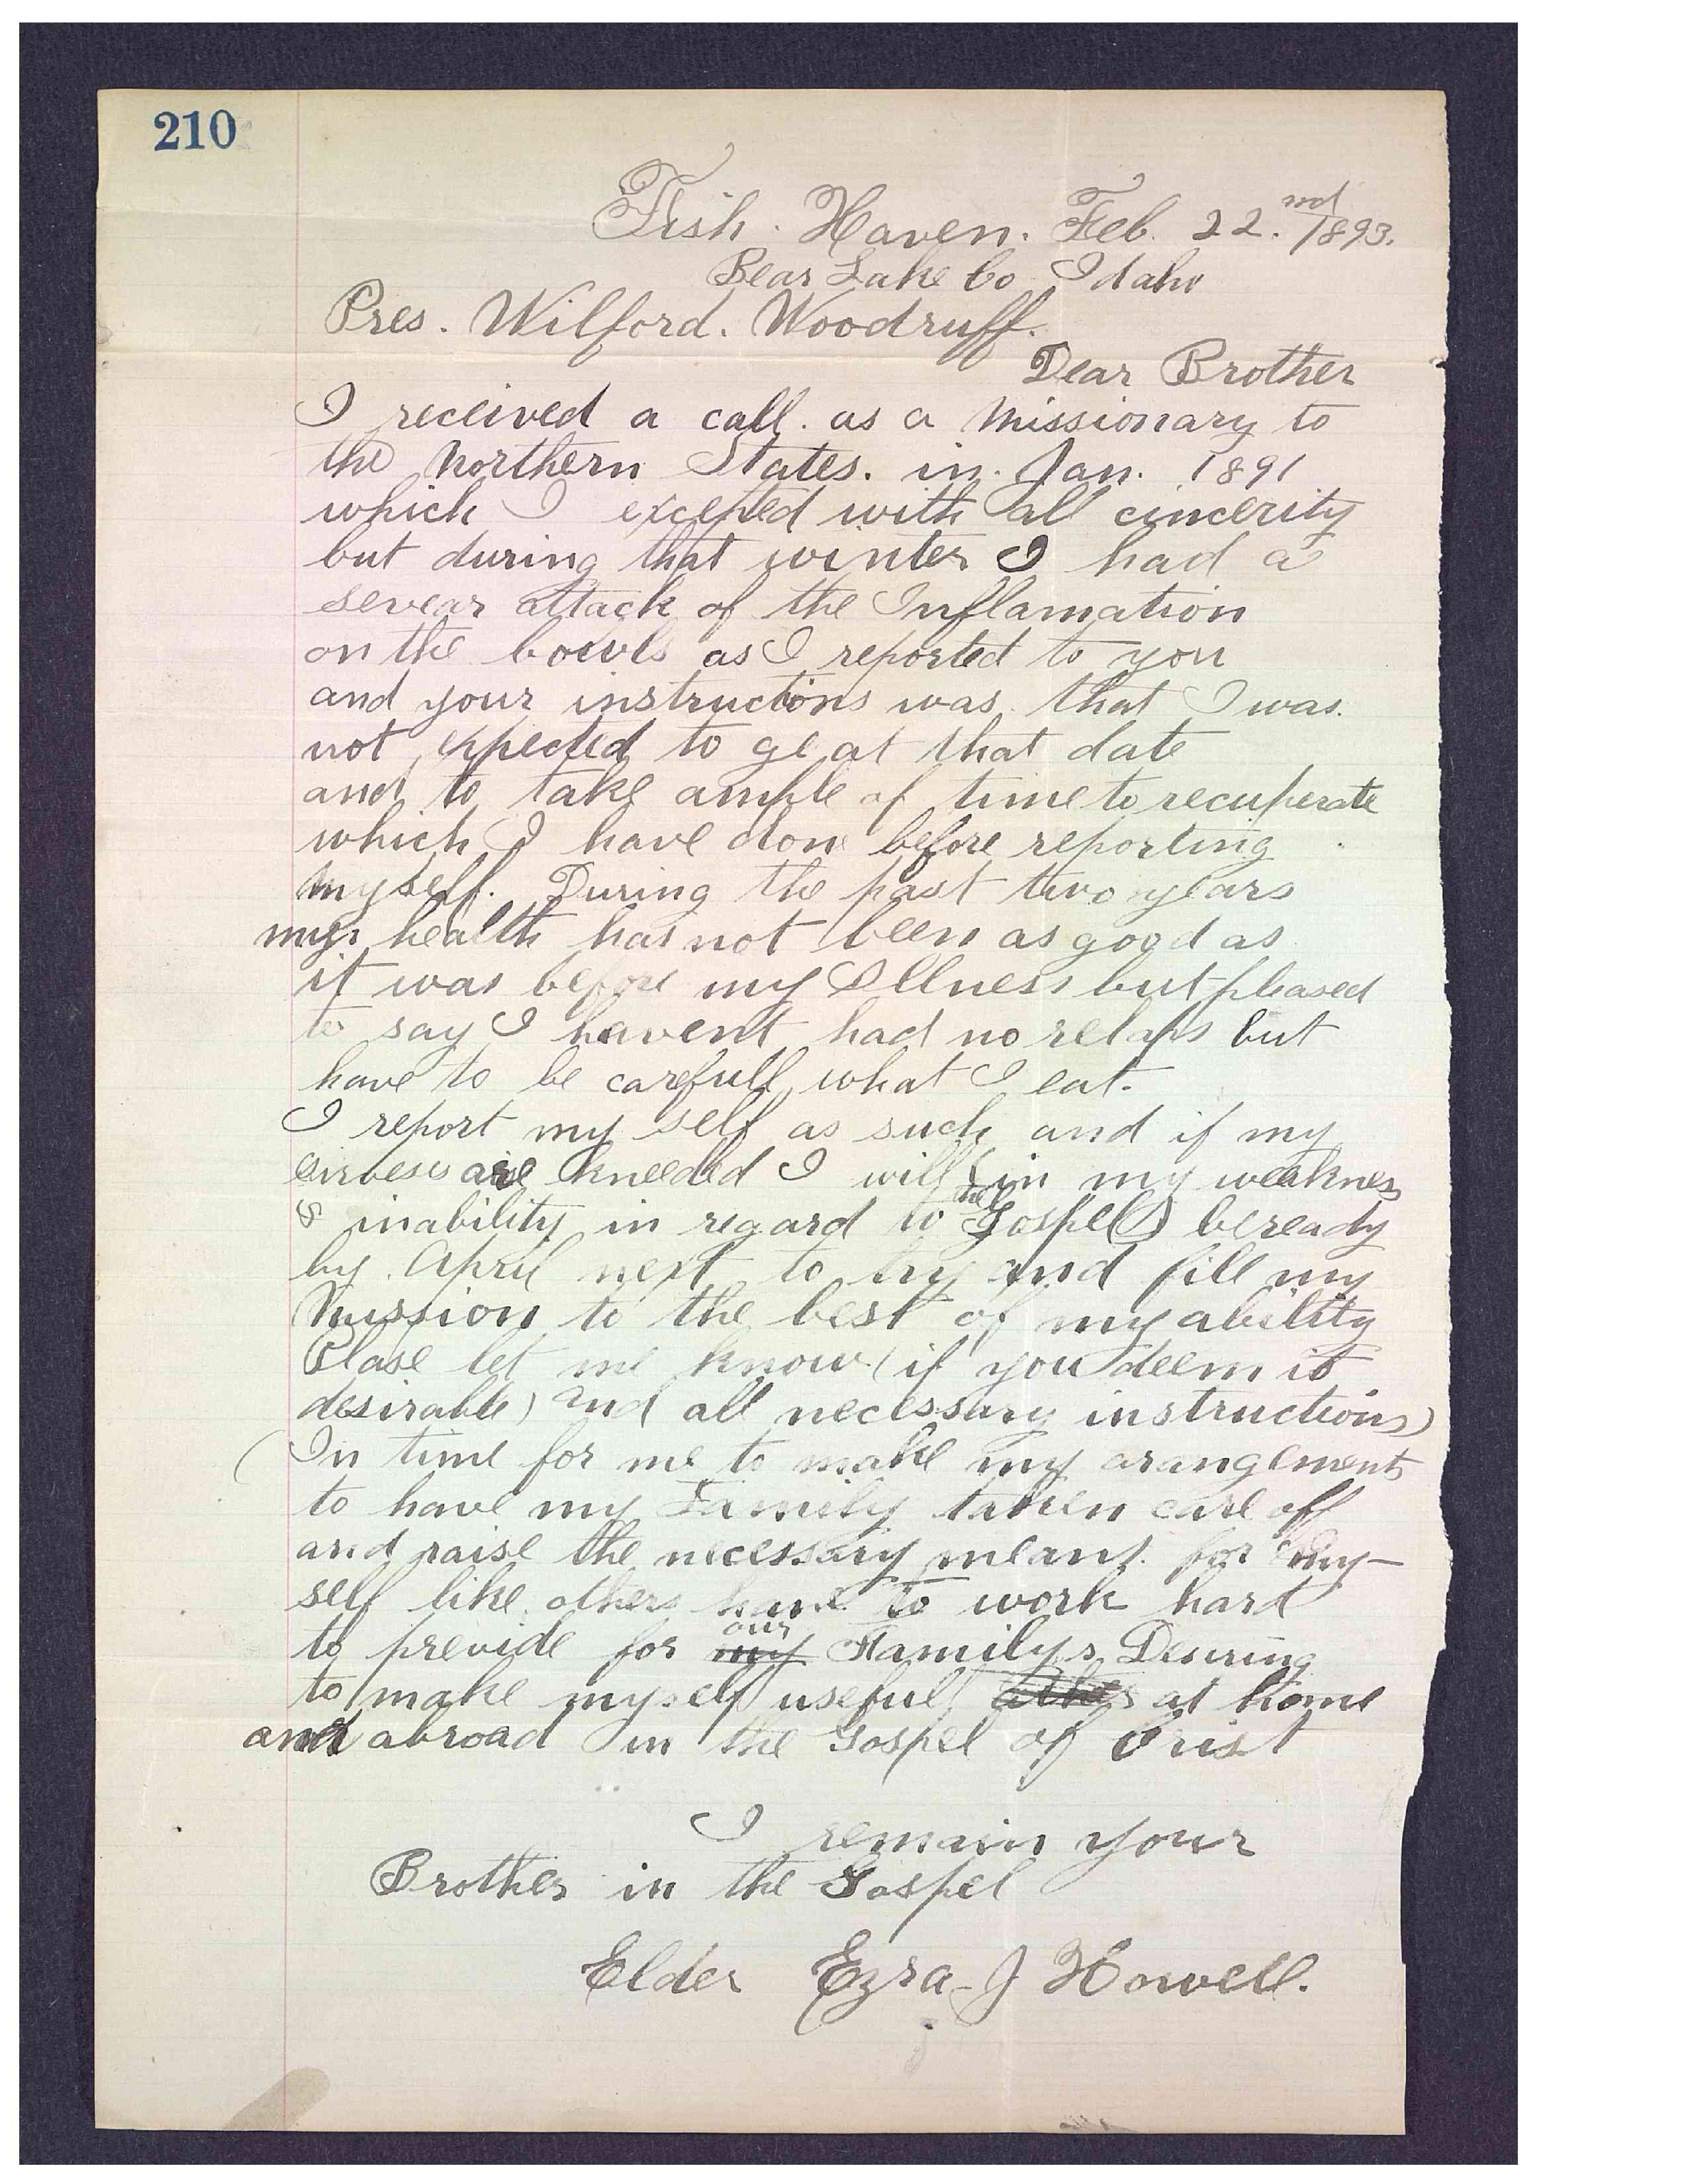 210
Fish. Haven. Feb. 22.nd 1893.
Bear Lake Co Idaho
Pres. Wilford. Woodruff.
Dear Brother
I received a call. as a Missionary to
the Northern States. in. Jan. 1891
which I excepted with all cincerity
but during that winter I had a
sevear attack of the Inflamation
on the bowls as I reported to you
and your instructions was. that I was.
not expected to go at that date
and to take ample of time to recuperate
which I have don before reporting
myself. During the past two years
my health has not been as good as
it was before my Illness but pleased
to say I havent had no relaps but
have to be carefull what I eat.
I report my self as such and if my
are kneeded I will (in my weakness
& inability in regard to the Gospel) be ready
by April next to try and fill my
Mission to the best of my ability
Plase let me know (if you deem it
desirable) and all necessary instructions)
(In time for me to make my arangements
to have my Family taken care off
and raise the necessary means. for my-
self like others have to work hard
to previde for my our Familys Desiring
to make myself useful at home
and abroad in the Gospel of Crist
I remain your
Brother in the Gospel
Elder Ezra J Howell.